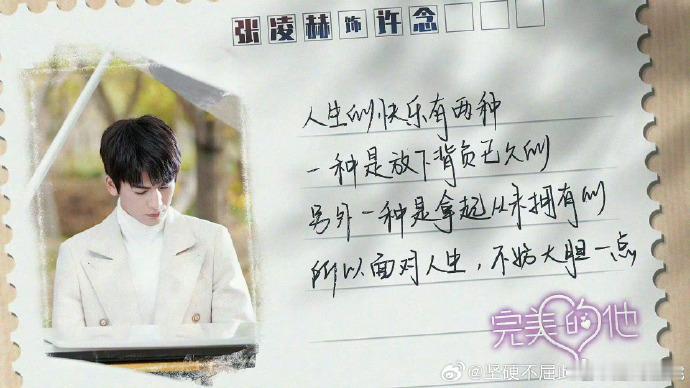 张凌赫饰许念
人生的快乐有两种
一种是放下背负已久的
另外一种是拿起从未拥有的
所以面对人生，不妨大胆一点
完美的他
@坚硬不屈